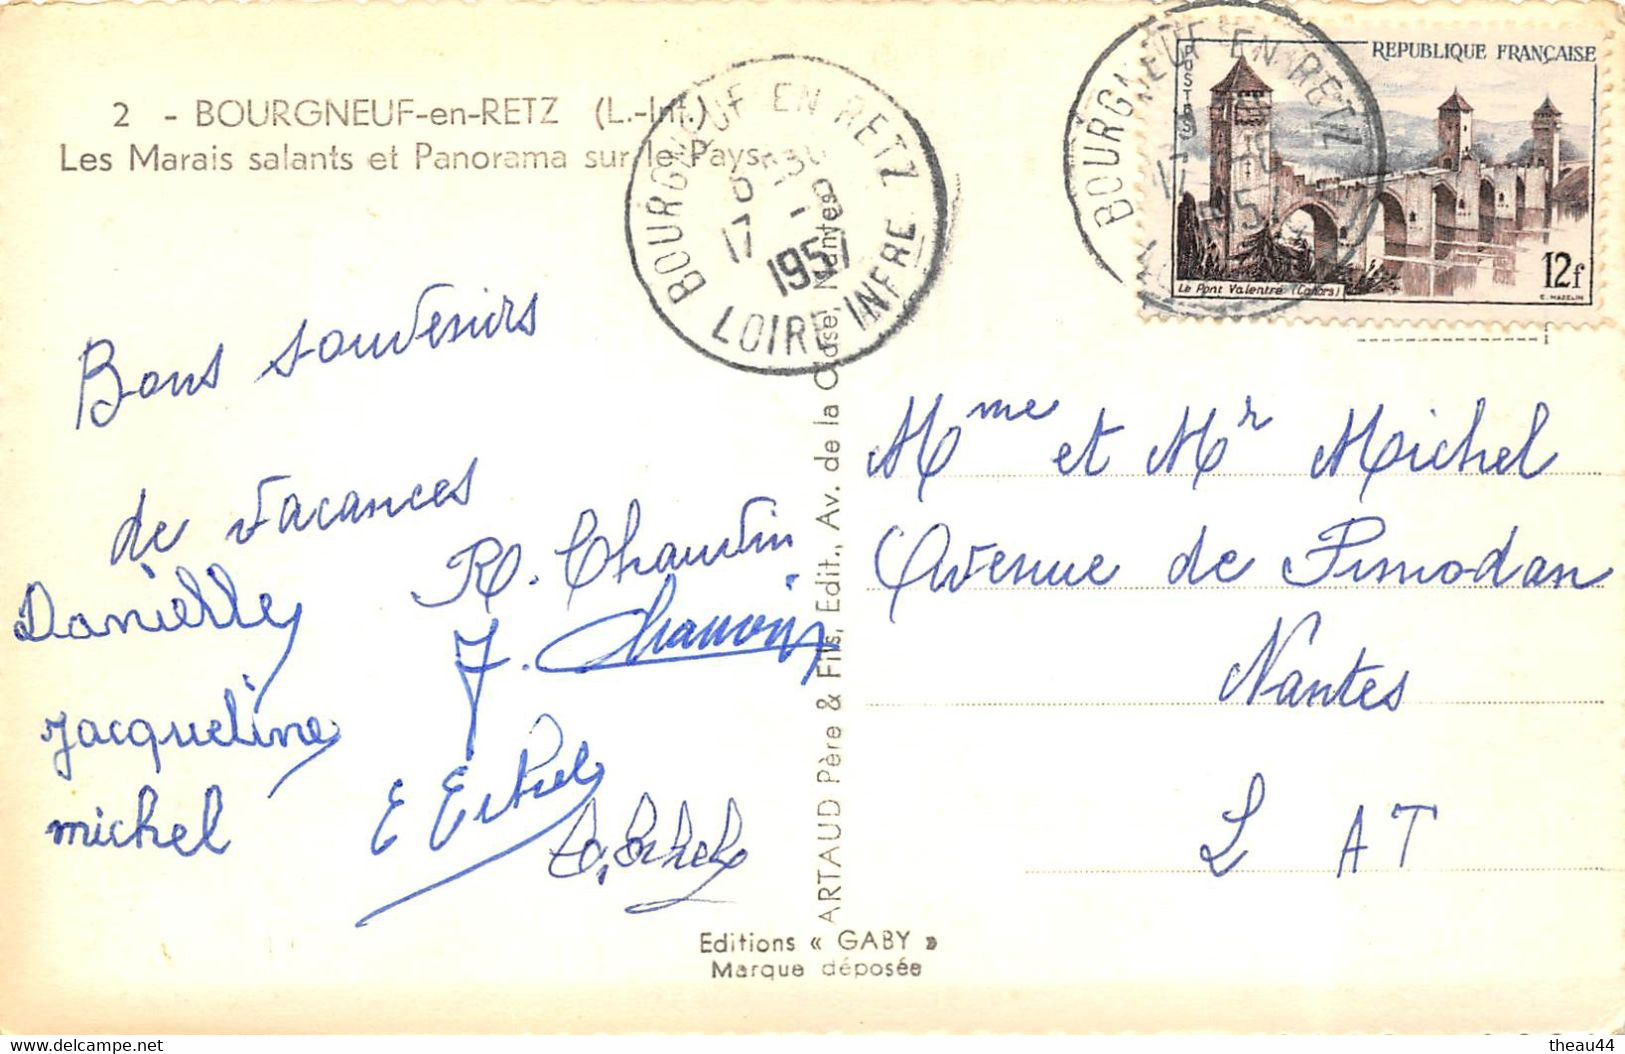 2 - BOURGNEUF-en-RETZ (L.-Inf.)
Les Marais salants et Panorama sur le Pays
BOURGNEUF EN RETZ
17 - 8
1957
LOIRE INFRE
BOURGNEUF EN RETZ
17
1957
POSTES
REPUBLIQUE FRANÇAISE
12f
Le Pont Valentré (Cahors)
Bons souvenirs
de vacances
R. Chauvin
Danielle
J. Chauvin
Jacqueline
michel
E
ARTAUD Père & Fils, Edit., Av. de la Close, Nantes
Mme et Mr Michel
Avenue de Pimodan
Nantes
L AT
Editions « GABY »
Marque déposée
delcampe.net
theau44